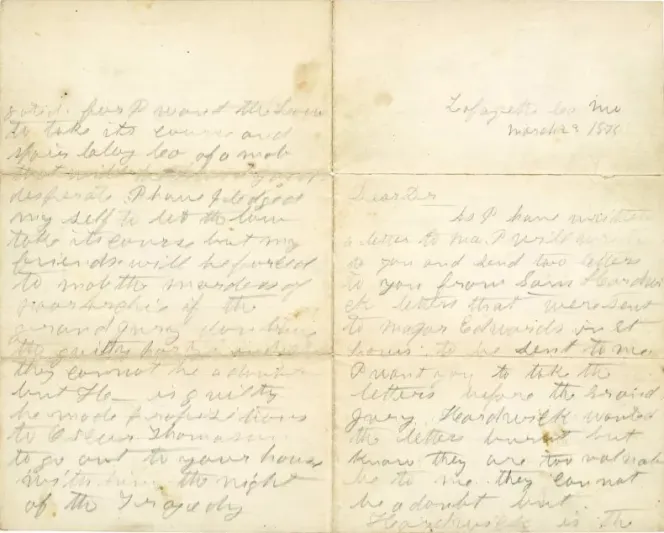 Lafayette Co Mo
March 23 1875
Dear Dr
As I have written
a letter to ma I will write
to you and send two letters
to you from Sam Hardwi
ck letters that were sent
to Major Edwards in St
Louis to be sent to me
I want you to take the
letters before the Graind
Jury. Hardwick wanted
the letters burnt but
know they are too valuable
to me they can not
be a doubt but
Hardwick is the
for I want the law
to take its course and
spair Clay Co of a mob
that will
desperate. I have pledged
my self to let the law
take its course but my
friends will be forced
to mob the murders of
poor Archie if the
grand Jury
the guilty
they can not be a doubt
but He is guilty
he made propositions
to Oscar Thomason
to go out to your house
with him the night
of the Tragedy